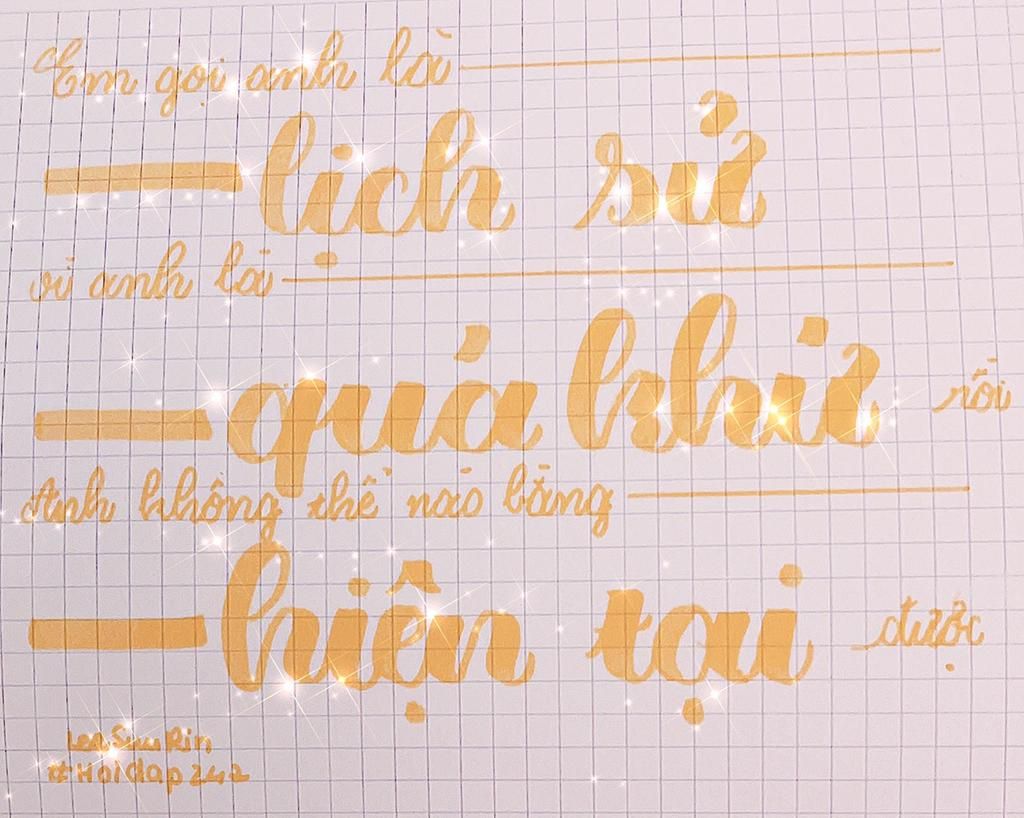 Em gọi anh là
lịch sử
vì anh là
quá khứ rồi
Anh không thể nào bằng
hiện tại được
Rin
#Hoidap242